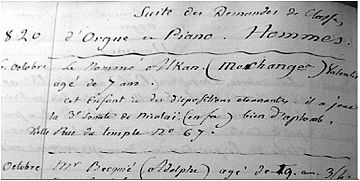 Suite des Demandes de Classe,
820 d'Orgue et Piano. Hommes.
Octobre Le Nommé Alkan. (Morhange) Valentin
agé de 7 ans.
cet Enfant a des dispositions etonnantes. il a joué
la 3e Sonate de Steibelt (en fa) bien d'aplomb.
Rue du temple No 67.
Octobre Mr Becquié (Adolphe) agé de 19. ans. 3/4